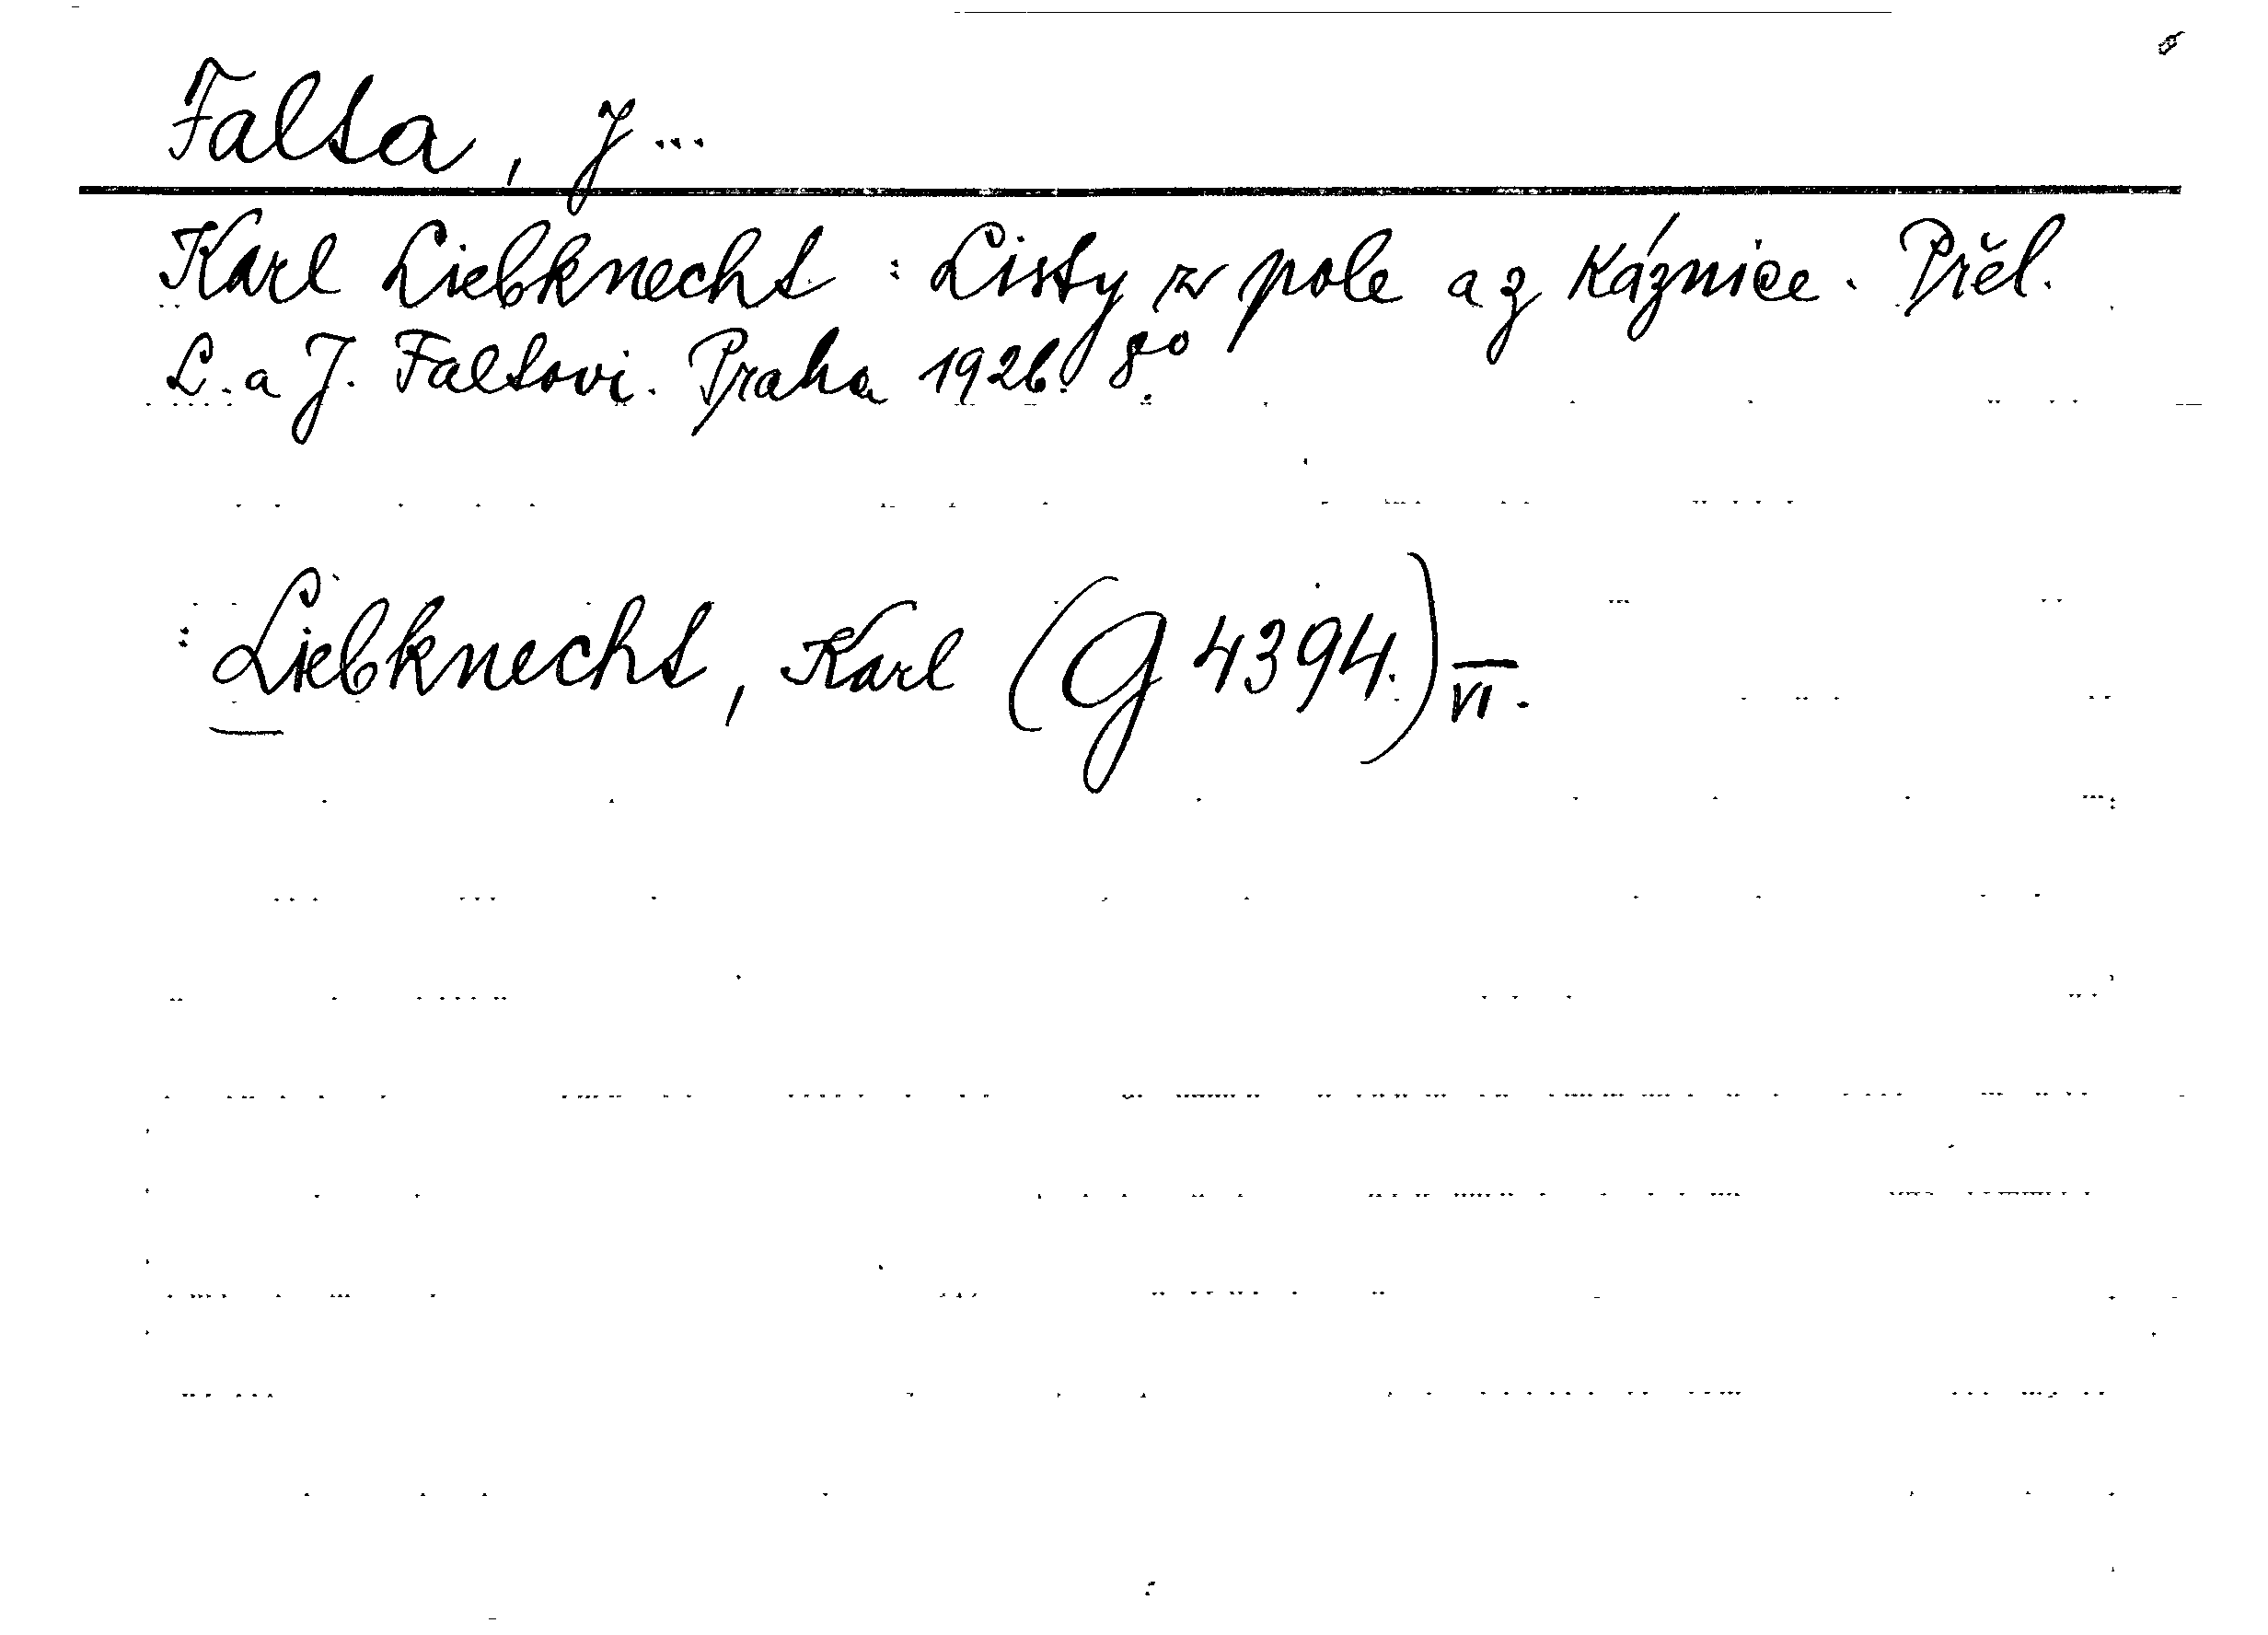 Falta, J...
Karl Liebknecht : Listy z pole a z káznice. Přel.
L. a J. Faltovi. Praha 1926. 8°.
: Liebknecht, Karl (G 4394.) VI.